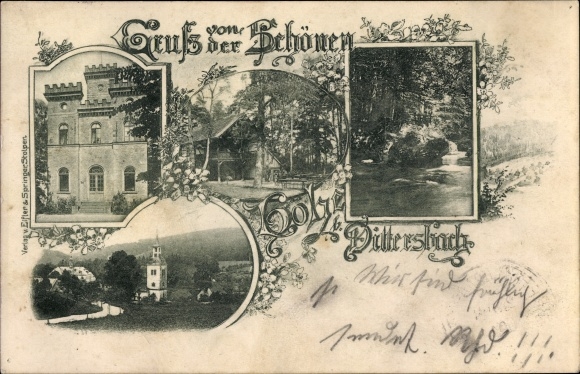 Gruß von
der Schönen
Höhe
b. Dittersbach
Verlag v. Elfter & Springer, Stolpen.
Wir sind fröhlich